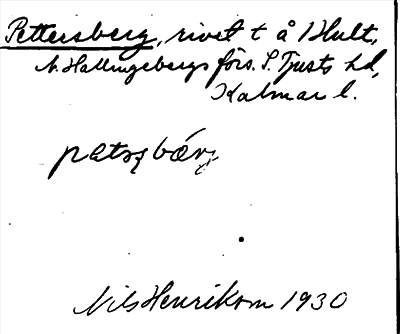 Pettersberg, rivet t å Hult,
N. Hallingebergs förs. S. Tjusts hd,
Kalmar l.
Nils Henrikson 1930